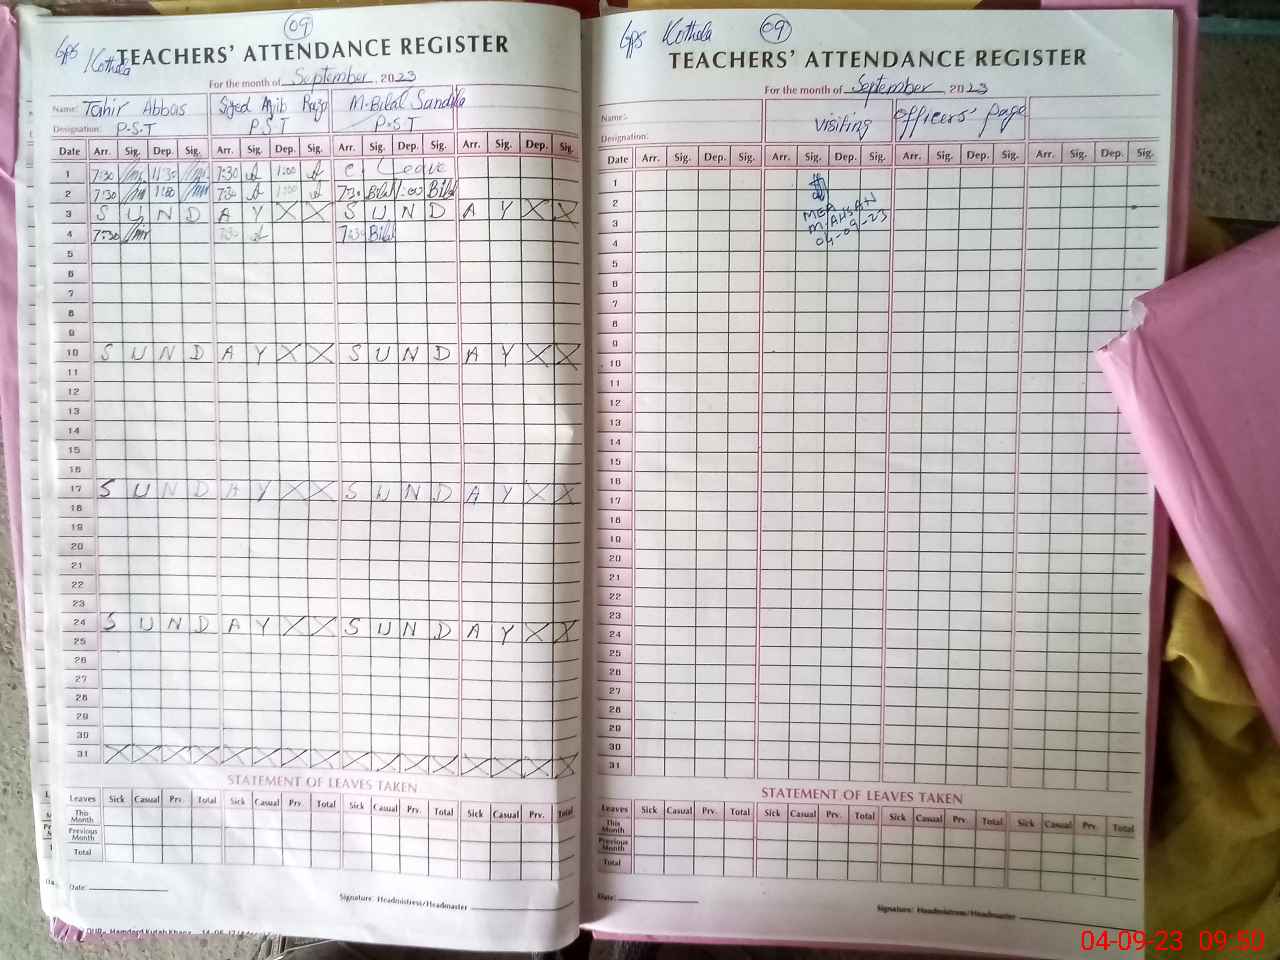 09
GPS Kothala
TEACHERS' ATTENDANCE REGISTER
For the month of September, 2023
Name: Tahir Abbas Syed Ajib Raza M. Bilal Sandila
Designation: P.S.T P.S.T P.S.T
Date Arr. Sig. Dep. Sig. Arr. Sig. Dep. Sig. Arr. Sig. Dep. Sig. Arr. Sig. Dep. Sig.
1 7:30 11:30 7:30 1:00 C Leave
2 7:30 1:00 7:30 1:00 7:30 Bilal 1:00 Bilal
3 S U N D A Y X X S U N D A Y X X
4 7:30 7:30 7:30 Bilal
5
6
7
8
9
10 S U N D A Y X X S U N D A Y X X
11
12
13
14
15
16
17 S U N D A Y X X S U N D A Y X X
18
19
20
21
22
23
24 S U N D A Y X X S U N D A Y X X
25
26
27
28
29
30
31 X X X X X X X X X X X X X X X X
STATEMENT OF LEAVES TAKEN
Leaves Sick Casual Prv. Total Sick Casual Prv. Total Sick Casual Prv. Total Sick Casual Prv. Total
This Month
Previous Month
Total
Date:
Signature: Headmistress/Headmaster
GPS Kothala 09
TEACHERS' ATTENDANCE REGISTER
For the month of September, 2023
Name:
Visiting Officers' Page
Designation:
Date Arr. Sig. Dep. Sig. Arr. Sig. Dep. Sig. Arr. Sig. Dep. Sig. Arr. Sig. Dep. Sig.
1
2
3
4
MEA
M. AHSAN
04-09-23
5
6
7
8
9
10
11
12
13
14
15
16
17
18
19
20
21
22
23
24
25
26
27
28
29
30
31
STATEMENT OF LEAVES TAKEN
Leaves Sick Casual Prv. Total Sick Casual Prv. Total Sick Casual Prv. Total Sick Casual Prv. Total
This Month
Previous Month
Total
Date:
Signature: Headmistress/Headmaster
04-09-23 09:50